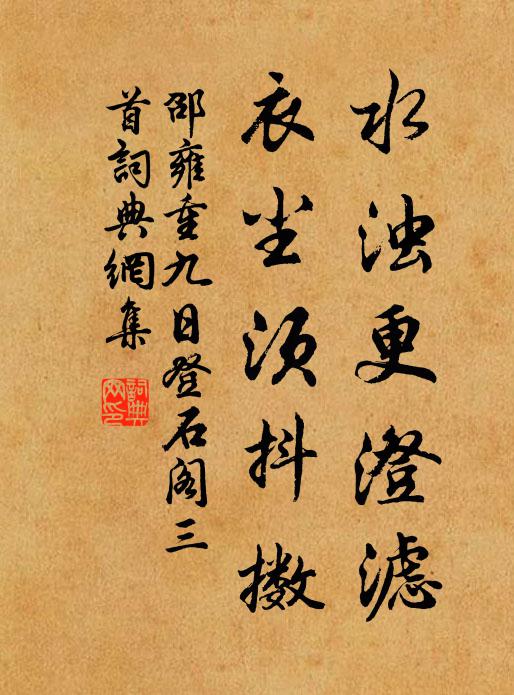 水浊更澄滤
衣尘须抖擞
邵雍重九日登石阁三
首詞典網集
詞典网印